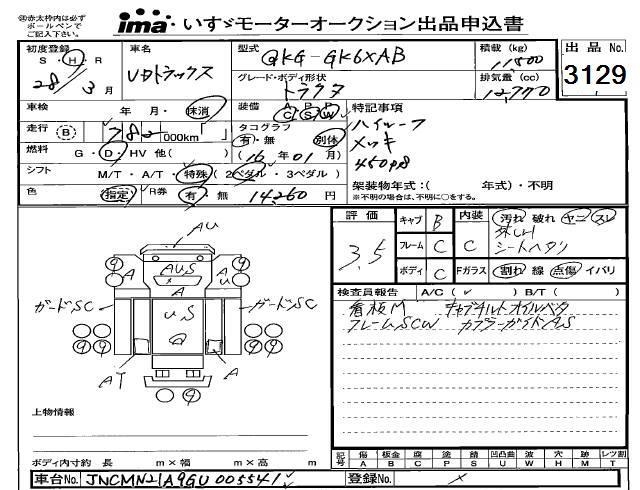 ㊟赤太枠内は必ず
ボールペンで
ご記入下さい。
ima いすゞモーターオークション出品申込書
初度登録
S・H・R
28/3月
車名
UDトラックス
型式
QKG-GK6XAB
積載(kg)
11,500
出品No.
3129
グレード・ボディ形状
トラクタ
排気量(cc)
12,770
車検
年 月・抹消
装備
A P P
C S W
特記事項
ハイルーフ
メッキ
450PS
走行
B
782 000km
タコグラフ
有・無 別体
(16年01月)
燃料
G・D・HV 他( )
シフト
M/T・A/T・特殊(2ペダル・3ペダル)
架装物年式:( 年式)・不明
※不明の場合は、不明に○をする。
色
指定
R券
有・無 14,260円
評価
3.5
キャブ B
フレーム C
ボディ C
内装 C
Fガラス C
汚れ 破れ ヤニ スレ
シートヘタリ
割れ 線 点傷 イバリ
検査員報告 A/C( ✓ ) B/T( )
看板M キャブチルトオイルベタ
フレームSCW カプラーガイドAS
AU
AU.S
A
A
U
ガードSC
ガードSC
U.S
AT
A
上物情報
ボディ内寸約 長 m×幅 m×高 m
記号
傷 板金 腐 塗 Sップ 凹凸曲 波 穴 跡 レツ割
A B C P S U W H M T
車台No. JNCMN21A9GU005541
登録No.